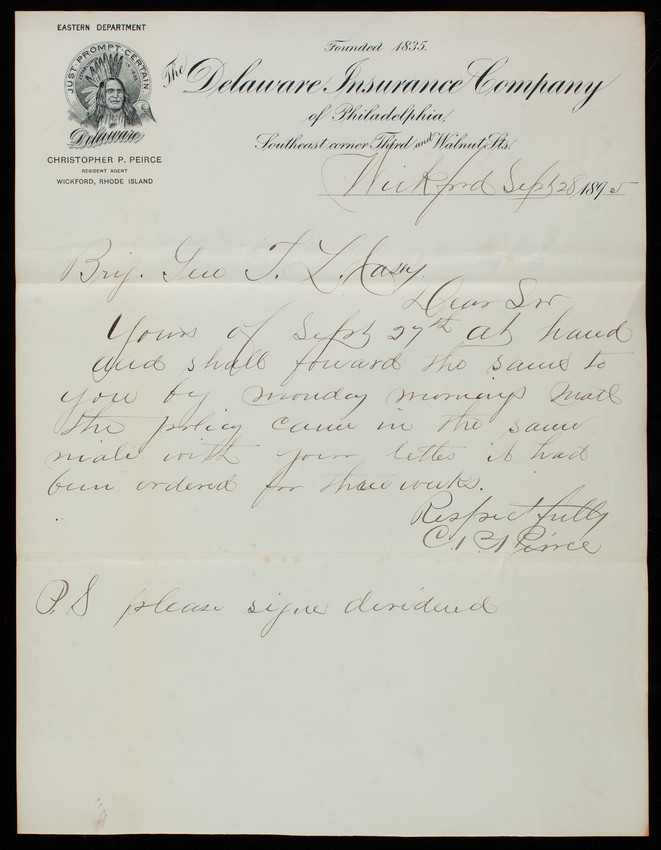 EASTERN DEPARTMENT
JUST·PROMPT·CERTAIN
Delaware
CHRISTOPHER P. PEIRCE
RESIDENT AGENT
WICKFORD, RHODE ISLAND
Founded 1835.
The Delaware Insurance Company
of Philadelphia,
Southeast corner Third and Walnut Sts.
Wickford Sept 28 1895
Brig. Gen T. L. Casey.
Dear Sir
Yours of Sept 27th at hand
and shall foward the same to
you by monday mornings mail
the policy came in the same
male with your letter it had
been ordered for three weeks.
Respectfully
C. P. Peirce
P.S please signe devidened